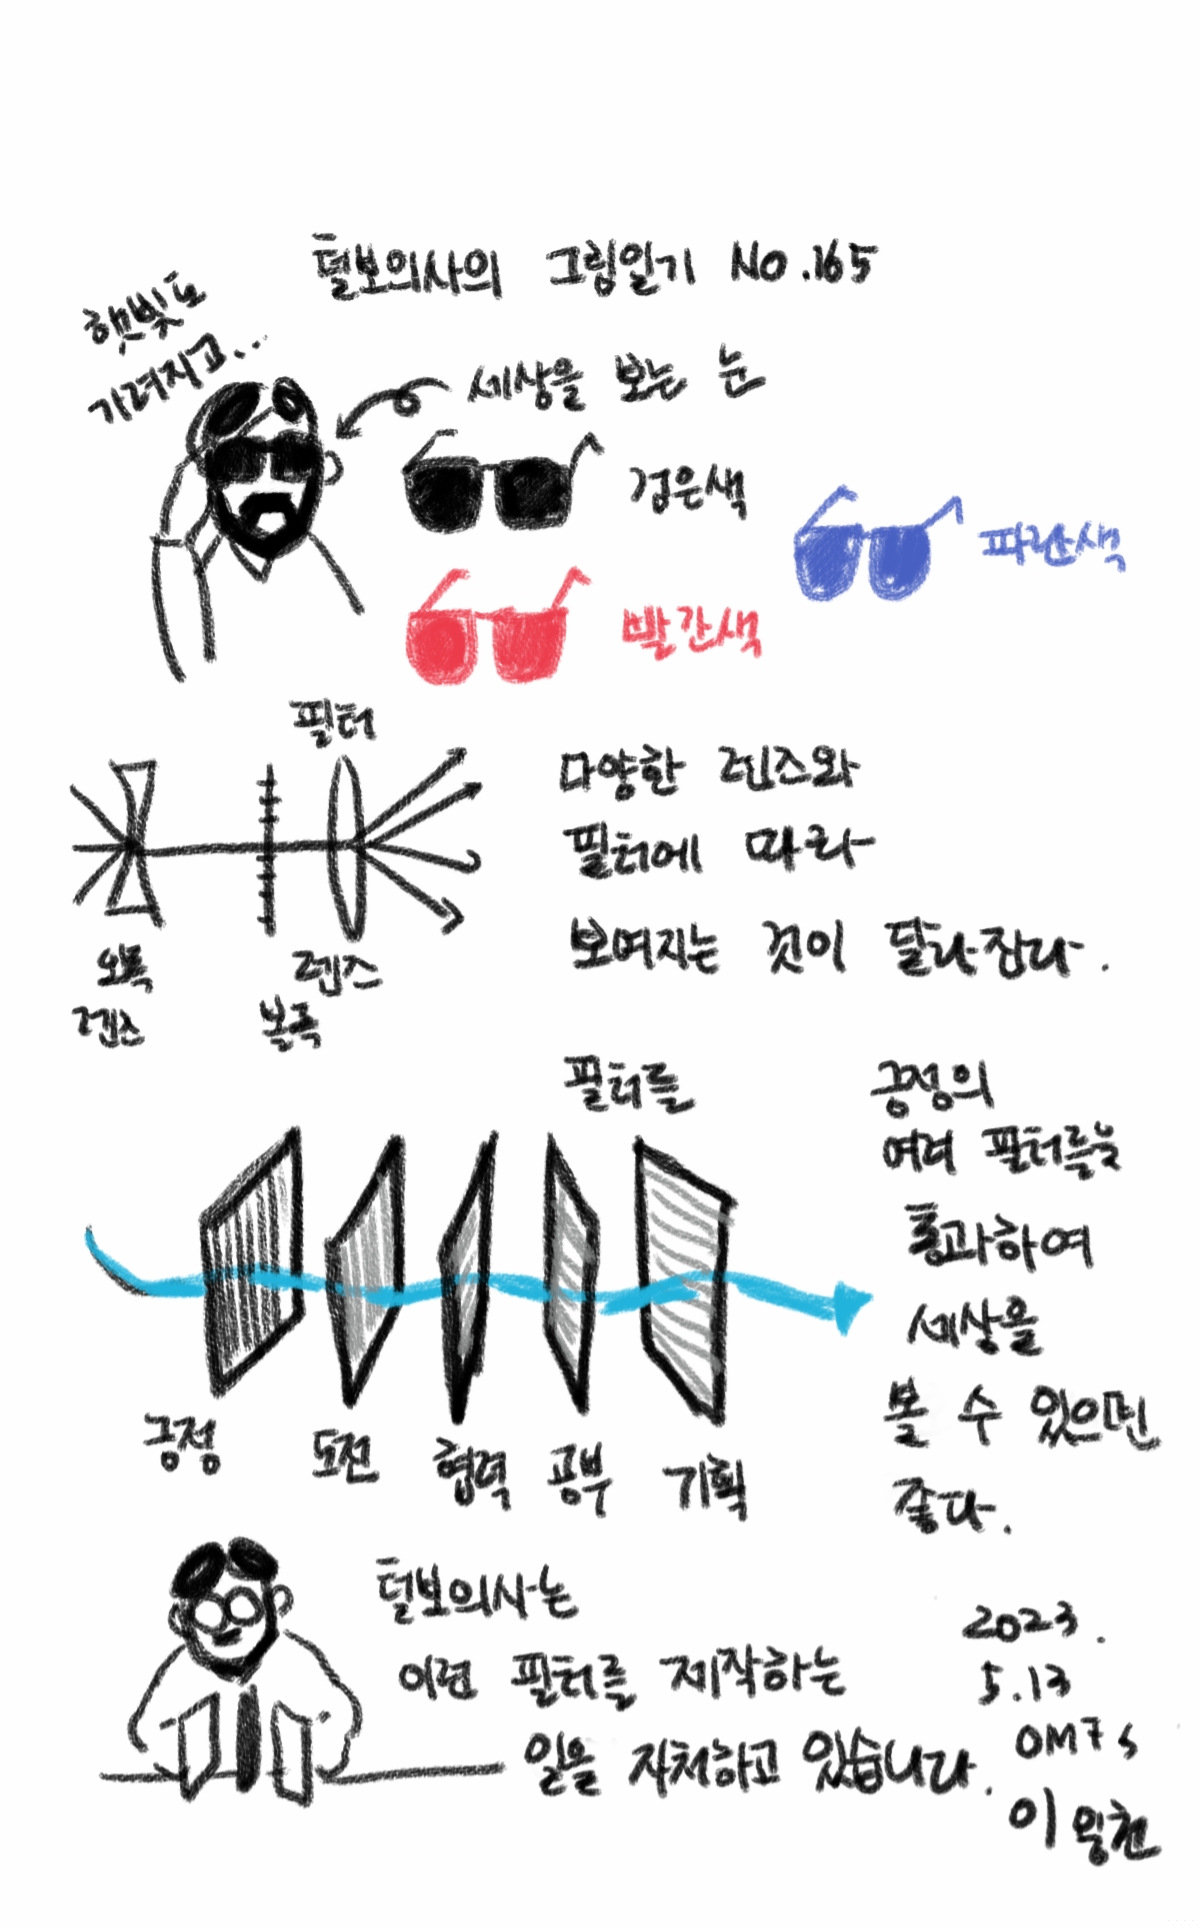 털보의사의 그림일기 No.165
햇빛도
가려지고...
세상을 보는 눈
검은색
파란색
빨간색
필터
오목
렌즈
렌즈
볼록
다양한 렌즈와
필터에 따라
보여지는 것이 달라진다.
필터를
긍정
도전
협력
공부
기획
긍정의
여러 필터를
통과하여
세상을
볼 수 있으면
좋다.
털보의사는
이런 필터를 제작하는
일을 자처하고 있습니다.
2023.
5.13